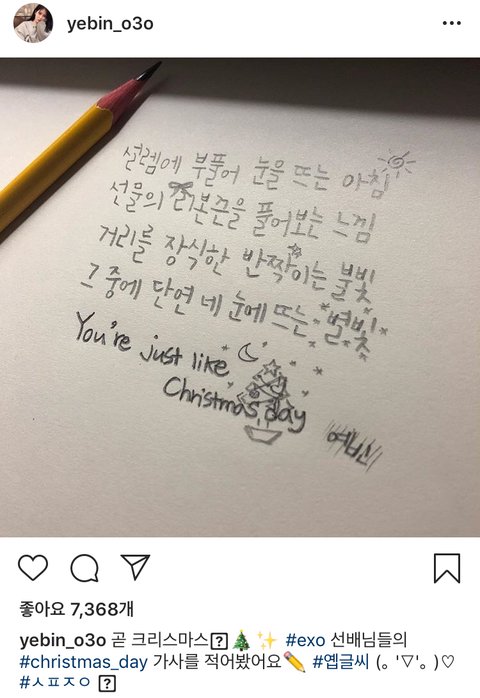 yebin_o3o
설렘에 부풀어 눈을 뜨는 아침
선물의 리본끈을 풀어보는 느낌
거리를 장식한 반짝이는 불빛
그 중에 단연 네 눈에 뜨는 별빛
You're just like
Christmas day
예빈
좋아요 7,368개
yebin_o3o 곧 크리스마스🎄✨ #exo 선배님들의
#christmas_day 가사를 적어봤어요✏️ #옙글씨 (｡'▽'｡)♡
#ㅅㅍㅈㅇ